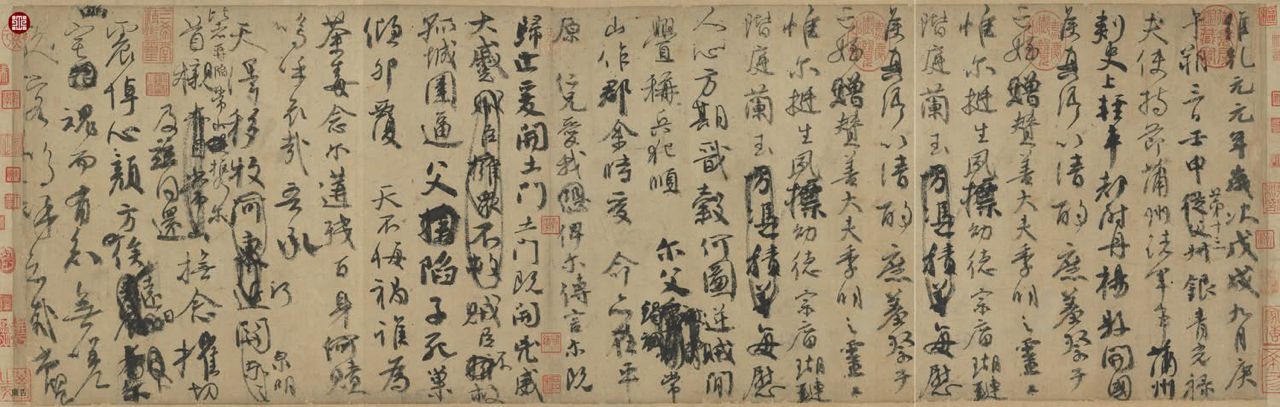 維乾元元年歲次戊戌九月庚
午朔三日壬申第十三從父銀青光祿
夫使持節蒲州諸軍事蒲州
刺史上輕車都尉丹楊縣開國
侯真卿以清酌庶羞祭于
亡姪贈贊善大夫季明之靈曰
惟爾挺生夙標幼德宗廟瑚璉
階庭蘭玉方憑積善每慰
侯真卿以清酌庶羞祭于
亡姪贈贊善大夫季明之靈曰
惟爾挺生夙標幼德宗廟瑚璉
階庭蘭玉方憑積善每慰
人心方期戩穀何圖逆賊閒
釁稱兵犯順爾父常
山作郡余時受命亦在平
原仁兄愛我恐俾爾傳言爾既
歸止爰開土門土門既開凶威
大蹙賊臣擁眾不救賊臣不救
孤城圍逼父陷子死巢
傾卵覆天不悔禍誰為
荼毒念爾遘殘百身何贖
嗚乎哀哉吾承
天澤移牧河關泉明
比者再陷常山攜爾
首櫬撫念摧切
及茲同還
震悼心顏方俟遠日
宅魂而有知無嗟
久客嗚呼哀哉尚饗